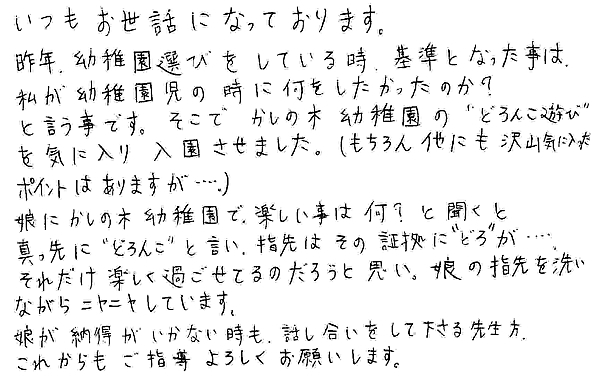 いつもお世話になっております。
昨年、幼稚園選びをしている時、基準となった事は、
私が幼稚園児の時に何をしたかったのか？
と言う事です。そこで かしの木 幼稚園の "どろんこ遊び"
を気に入り 入園させました。(もちろん 他にも 沢山気に入った
ポイントはありますが….)
娘に かしの木 幼稚園で、楽しい事は 何？ と聞くと
真っ先に "どろんこ" と言い、指先は その 証拠に "どろ" が ….
それだけ 楽しく 過ごせてるのだろうと 思い。娘の指先を洗い
ながら ニヤニヤしています。
娘が 納得が いかない時も、話し合いを して下さる先生方、
これからも ご指導 よろしく お願いします。